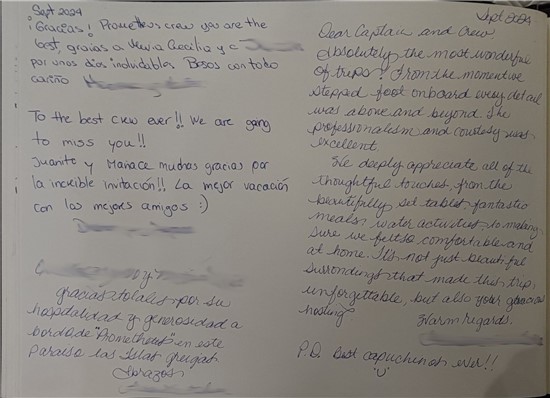 Sept 2024
¡Gracias! Prometheus crew you are the
best gracias a Maria Cecilia y a
por unos dias inolvidables Besos con todo
cariño
To the best crew ever!! We are going
to miss you!!
Juanito y Manace muchas gracias por
la increible invitación!! La mejor vacación
con los mejores amigos :)
y
gracias totales por su
hospitalidad y generosidad a
bordo de "Prometheus" en este
paraiso las Islas griegas
Abrazos
Sept 2024
Dear Captain and Crew,
Absolutely the most wonderful
of trips! From the moment we
stepped foot onboard every detail
was above and beyond. The
professionalism and courtesy was
excellent.
We deeply appreciate all of the
thoughtful touches, from the
beautifully set tables fantastic
meals, water activities to making
sure we felt so comfortable and
at home. It's not just beautiful
surroundings that made this trip
unforgettable, but also your gracious
hosting
Warm regards,
P.D. Best capuchinos ever!!